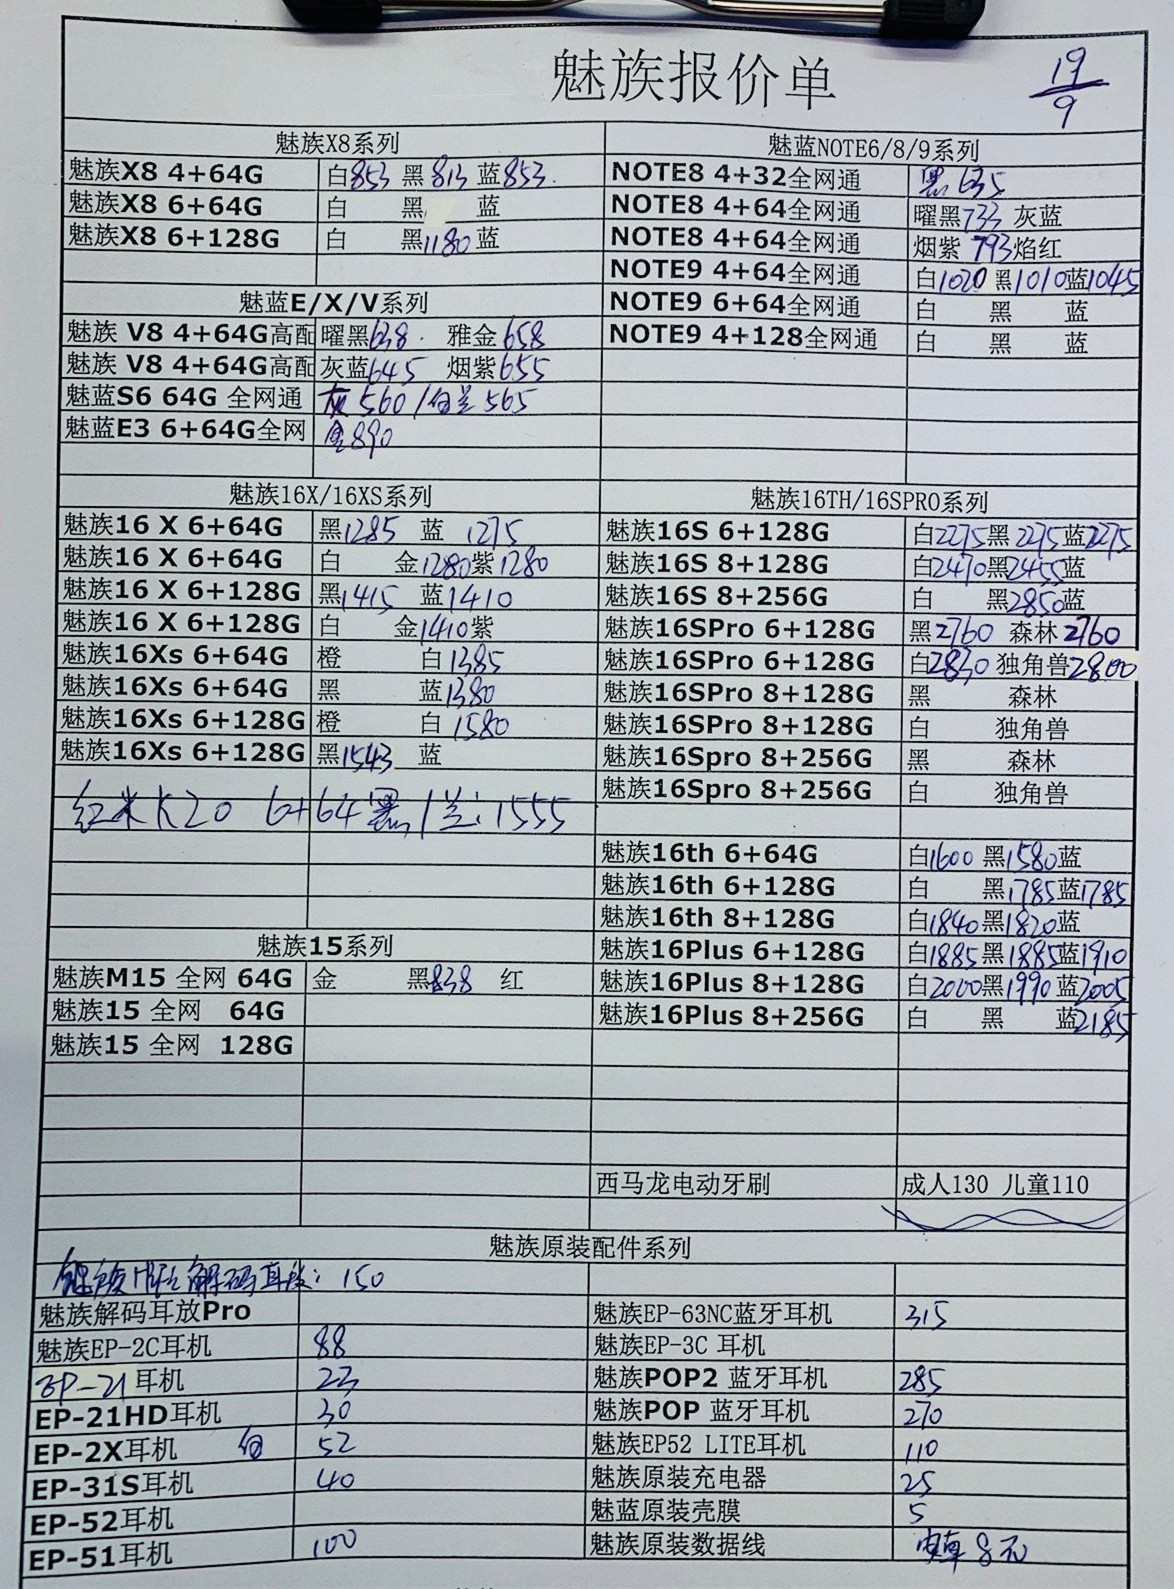 魅族报价单
19/9
魅族X8系列
魅族X8 4+64G 白853 黑813 蓝853
魅族X8 6+64G 白 黑 蓝
魅族X8 6+128G 白 黑1180 蓝
魅蓝E/X/V系列
魅族 V8 4+64G高配 曜黑638 雅金658
魅族 V8 4+64G高配 灰蓝645 烟紫655
魅蓝S6 64G 全网通 灰560/白兰565
魅蓝E3 6+64G全网 金890
魅蓝NOTE6/8/9系列
NOTE8 4+32全网通 黑635
NOTE8 4+64全网通 曜黑733 灰蓝
NOTE8 4+64全网通 烟紫 793焰红
NOTE9 4+64全网通 白1020 黑1010蓝1045
NOTE9 6+64全网通 白 黑 蓝
NOTE9 4+128全网通 白 黑 蓝
魅族16X/16XS系列
魅族16 X 6+64G 黑1285 蓝 1275
魅族16 X 6+64G 白 金1280紫1280
魅族16 X 6+128G 黑1415 蓝1410
魅族16 X 6+128G 白 金1410紫
魅族16Xs 6+64G 橙 白1385
魅族16Xs 6+64G 黑 蓝1380
魅族16Xs 6+128G 橙 白1580
魅族16Xs 6+128G 黑1543 蓝
红米K20 6+64黑/兰:1555
魅族15系列
魅族M15 全网 64G 金 黑838 红
魅族15 全网 64G
魅族15 全网 128G
魅族16TH/16SPRO系列
魅族16S 6+128G 白2275黑2275蓝2275
魅族16S 8+128G 白2470黑2455蓝
魅族16S 8+256G 白 黑2850蓝
魅族16SPro 6+128G 黑2760 森林2760
魅族16SPro 6+128G 白2830 独角兽2800
魅族16SPro 8+128G 黑 森林
魅族16SPro 8+128G 白 独角兽
魅族16Spro 8+256G 黑 森林
魅族16Spro 8+256G 白 独角兽
魅族16th 6+64G 白1600 黑1580蓝
魅族16th 6+128G 白 黑1785蓝1785
魅族16th 8+128G 白1840黑1820蓝
魅族16Plus 6+128G 白1885黑1885蓝1910
魅族16Plus 8+128G 白2000黑1990蓝2005
魅族16Plus 8+256G 白 黑 蓝2185
西马龙电动牙刷 成人130 儿童110
魅族原装配件系列
魅族HiFi解码耳放:150
魅族解码耳放Pro
魅族EP-63NC蓝牙耳机 315
魅族EP-2C耳机 88
魅族EP-3C 耳机
EP-21耳机 23
魅族POP2 蓝牙耳机 285
EP-21HD耳机 30
魅族POP 蓝牙耳机 270
EP-2X耳机 白 52
魅族EP52 LITE耳机 110
EP-31S耳机 40
魅族原装充电器 25
EP-52耳机
魅蓝原装壳膜 5
EP-51耳机 100
魅族原装数据线 8元